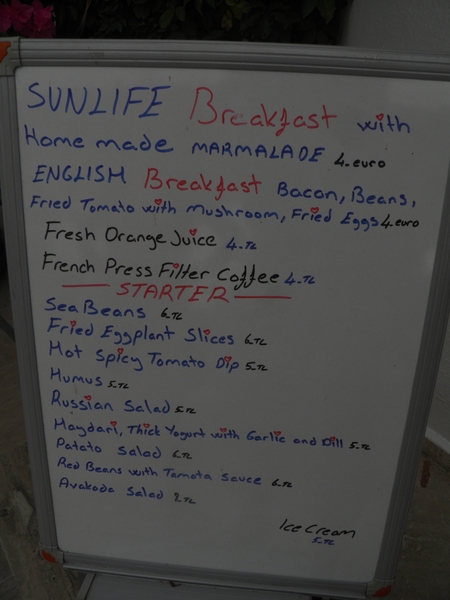 SUNLIFE Breakfast with
Home made MARMALADE 4.euro
ENGLISH Breakfast Bacon, Beans,
Fried Tomato with Mushroom, Fried Eggs 4.euro
Fresh Orange Juice 4.TL
French Press Filter Coffee 4.TL
STARTER
Sea Beans 6.TL
Fried Eggplant Slices 6.TL
Hot Spicy Tomato Dip 5.TL
Humus 5.TL
Russian Salad 5.TL
Haydari, Thick Yogurt with Garlic and Dill 5.TL
Patato Salad 6.TL
Red Beans with Tamata Sauce 6.TL
Avakoda Salad
Ice Cream
5.TL